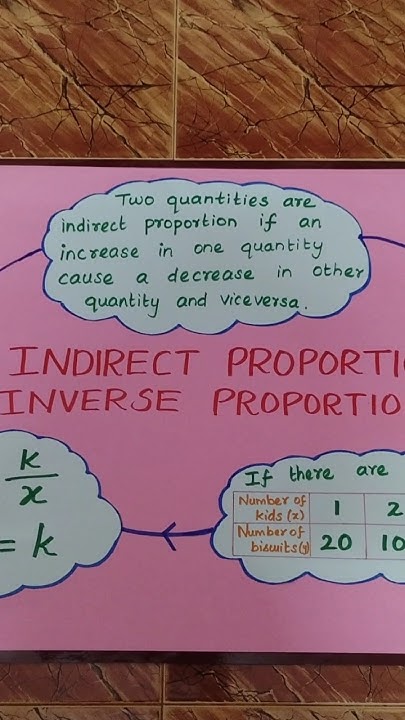 Two quantities are
indirect proportion if an
increase in one quantity
cause a decrease in other
quantity and viceversa.
INDIRECT PROPORTI
INVERSE PROPORTIO
k
x
= k
If there are
Number of kids (x) 1 2
Number of biscuits (y) 20 10